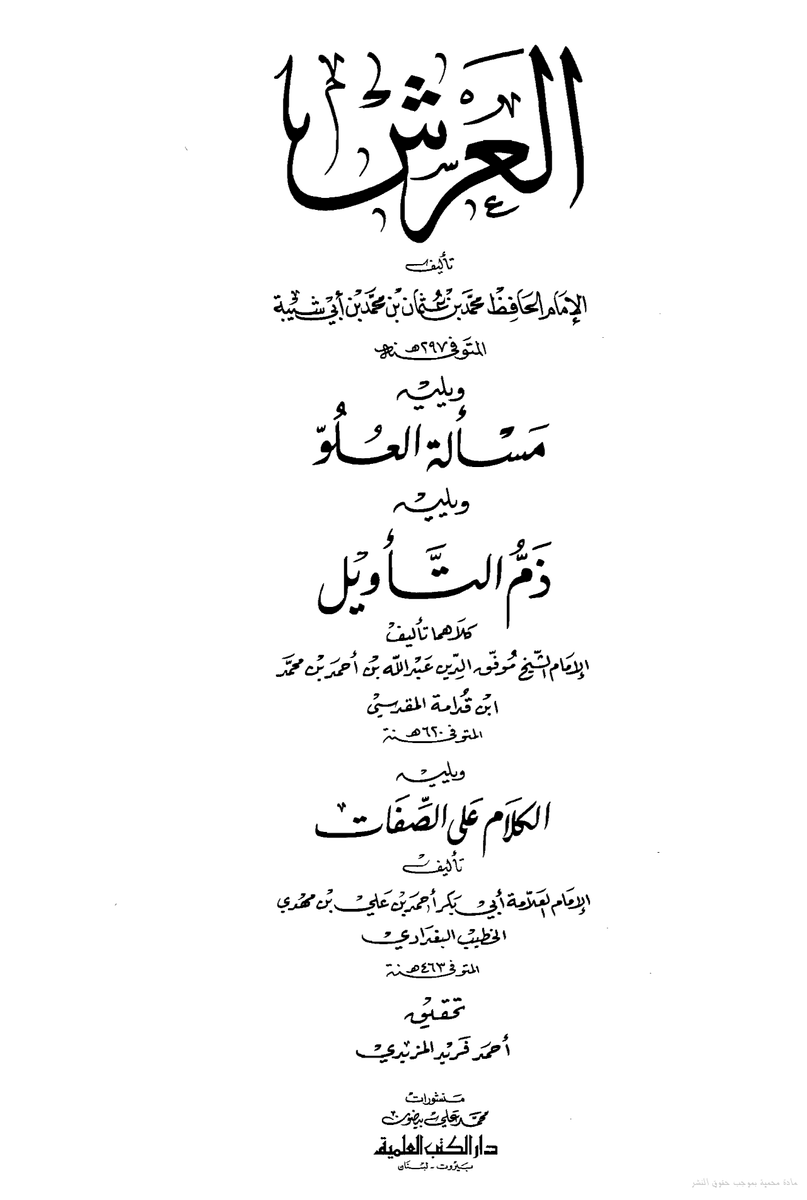 العَرْش
تأليف
الإمَام الحَافِظ محمَّد بْن عُثمان بْن محمَّد بْن أبي شَيْبة
المتَوفى ٢٩٧هـ سنة
ويليه
مَسْألة العُلُوّ
ويليه
ذَمُّ التَّأويْل
كلاَهما تأليف
الإمَام الشّيْخ مُوفّق الدِّين عَبْد اللّه بْن أحمَد بْن محمَّد
ابْن قُدامة المقدسيْ
المتوفى ٦٢٠هـ سنة
ويليه
الكلاَم عَلى الصِّفَات
تأليف
الإمَام العَلاّمة أبيْ بَكر أحمَد بْن عَليْ بْن مهْدي
الخطيْب البغْدَاديْ
المتوفى ٤٦٣هـ سنة
تحقيْق
أحمَد فَريْد المزيْديْ
منشورات
محمَّد عَليْ بيضون
دار الكتب العلمية
بَيْروت - لبْنان
مادة محمية بموجب حقوق النشر